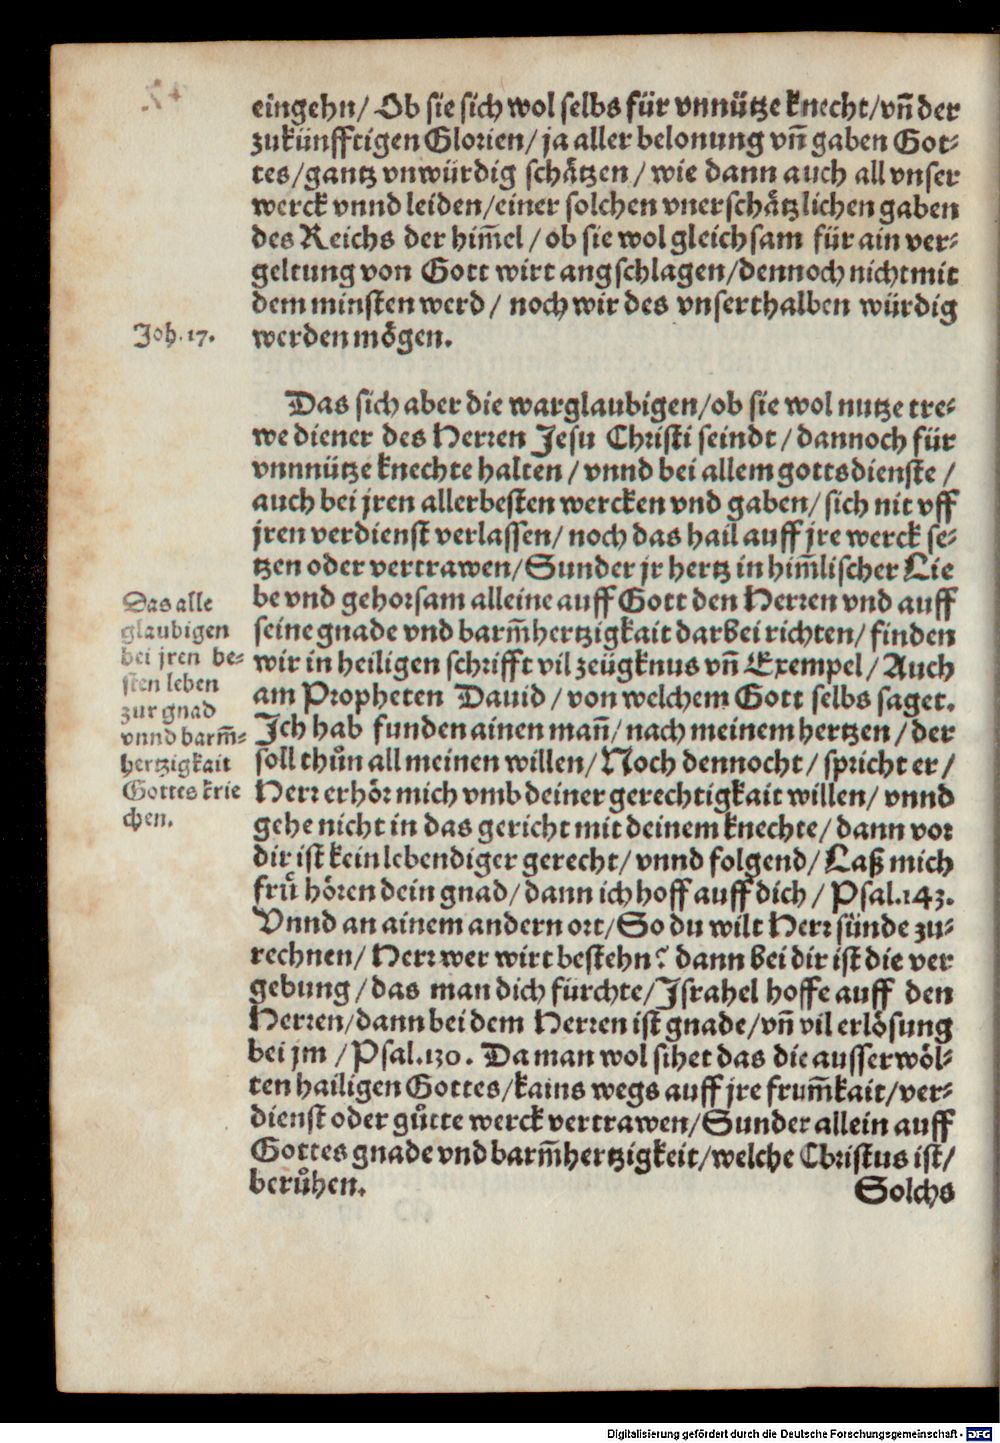 eingehn/ Ob sie sich wol selbs für vnnütze knecht/vn̄ der
zukünfftigen Glorien/ ja aller belonung vn̄ gaben Got-
tes/gantz vnwürdig schätzen/ wie dann auch all vnser
werck vnnd leiden/einer solchen vnerschätzlichen gaben
des Reichs der him̄el/ ob sie wol gleichsam für ain ver-
geltung von Gott wirt angschlagen/dennoch nicht mit
dem minsten werd/ noch wir des vnserthalben würdig
Joh. 17.
werden mögen.
Das sich aber die warglaubigen/ob sie wol nutze tre-
we diener des Herren Jesu Christi seindt/dannoch für
vnnnütze knechte halten/vnnd bei allem gottsdienste/
auch bei jren allerbesten wercken vnd gaben/ sich nit vff
jren verdienst verlassen/ noch das hail auff jre werck se-
tzen oder vertrawen/Sunder jr hertz in him̄lischer Lie
be vnd gehorsam alleine auff Gott den Herren vnd auff
seine gnade vnd barm̄hertzigkait darbei richten/ finden
wir in heiligen schrifft vil zeügknus vn̄ Exempel/Auch
am Propheten Dauid/von welchem Gott selbs saget.
Ich hab funden ainen man̄/nach meinem hertzen/der
soll thůn all meinen willen/Noch dennocht/ spricht er/
Herr erhör mich vmb deiner gerechtigkait willen/ vnnd
gehe nicht in das gericht mit deinem knechte/dann vor
dir ist kein lebendiger gerecht/vnnd folgend/Laß mich
frů hören dein gnad/dann ich hoff auff dich/Psal.143.
Vnnd an ainem andern ort/So du wilt Herr sünde zu-
rechnen/ Herr wer wirt bestehn? dann bei dir ist die ver
gebung/das man dich fürchte/Israhel hoffe auff den
Herren/dann bei dem Herren ist gnade/vn̄ vil erlösung
bei jm /Psal.130. Da man wol sihet das die ausserwöl-
ten hailigen Gottes/kains wegs auff jre frum̄kait/ver-
dienst oder gůtte werck vertrawen/Sunder allein auff
Gottes gnade vnd barm̄hertzigkeit/welche Christus ist/
berůhen.
Solchs
Das alle
glaubigen
bei jren be-
sten leben
zur gnad
vnnd barm̄-
hertzigkait
Gottes krie
chen.
Digitalisierung gefördert durch die Deutsche Forschungsgemeinschaft - DFG